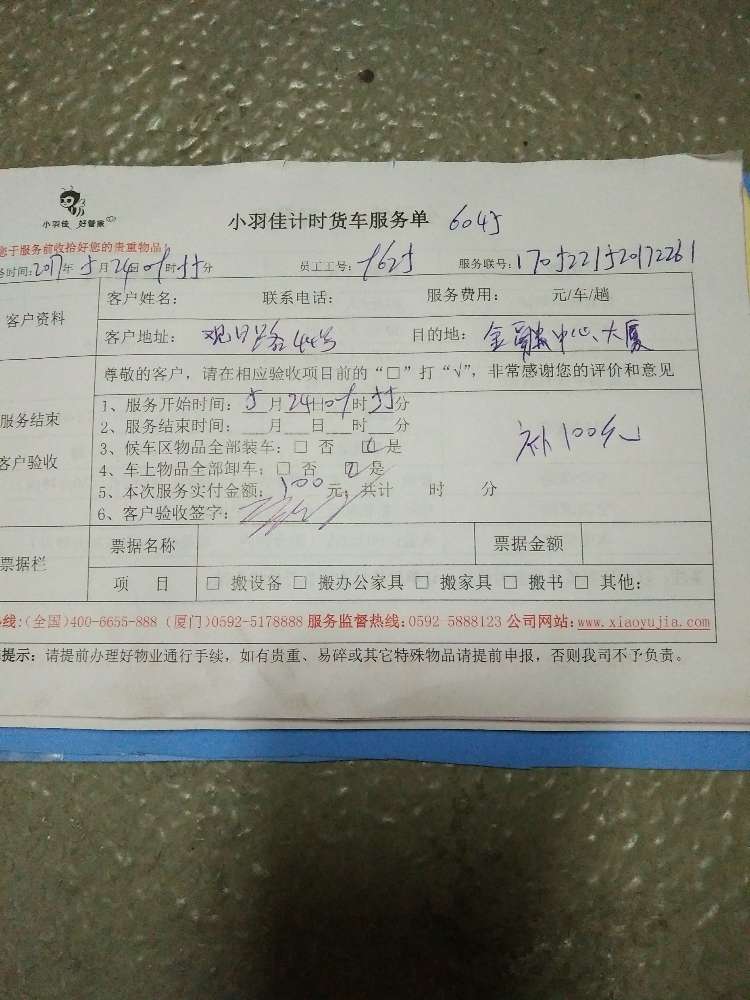 小羽佳 好管家
小羽佳计时货车服务单 6045
您于服务前收拾好您的贵重物品!
务时间:2017年5月24日 时55分 员工工号: 服务联号:
客户资料 客户姓名: 联系电话: 服务费用: 元/车/趟
客户地址: 观日路44号 目的地: 金融中心大厦
尊敬的客户,请在相应验收项目前的“□”打“√”,非常感谢您的评价和意见
服务结束
客户验收
1、服务开始时间: 5月24日 时55分
2、服务结束时间: 月 日 时 分
3、候车区物品全部装车: □ 否 ☑ 是
补100元
4、车上物品全部卸车: □ 否 ☑ 是
5、本次服务实付金额: 100元, 共计 时 分
6、客户验收签字:
票据栏 票据名称 票据金额
项 目 □ 搬设备 □ 搬办公家具 □ 搬家具 □ 搬书 □ 其他:
线:(全国)400-6655-888 (厦门)0592-5178888 服务监督热线:0592-5888123 公司网站:www.xiaoyujia.com
提示: 请提前办理好物业通行手续,如有贵重、易碎或其它特殊物品请提前申报,否则我司不予负责。